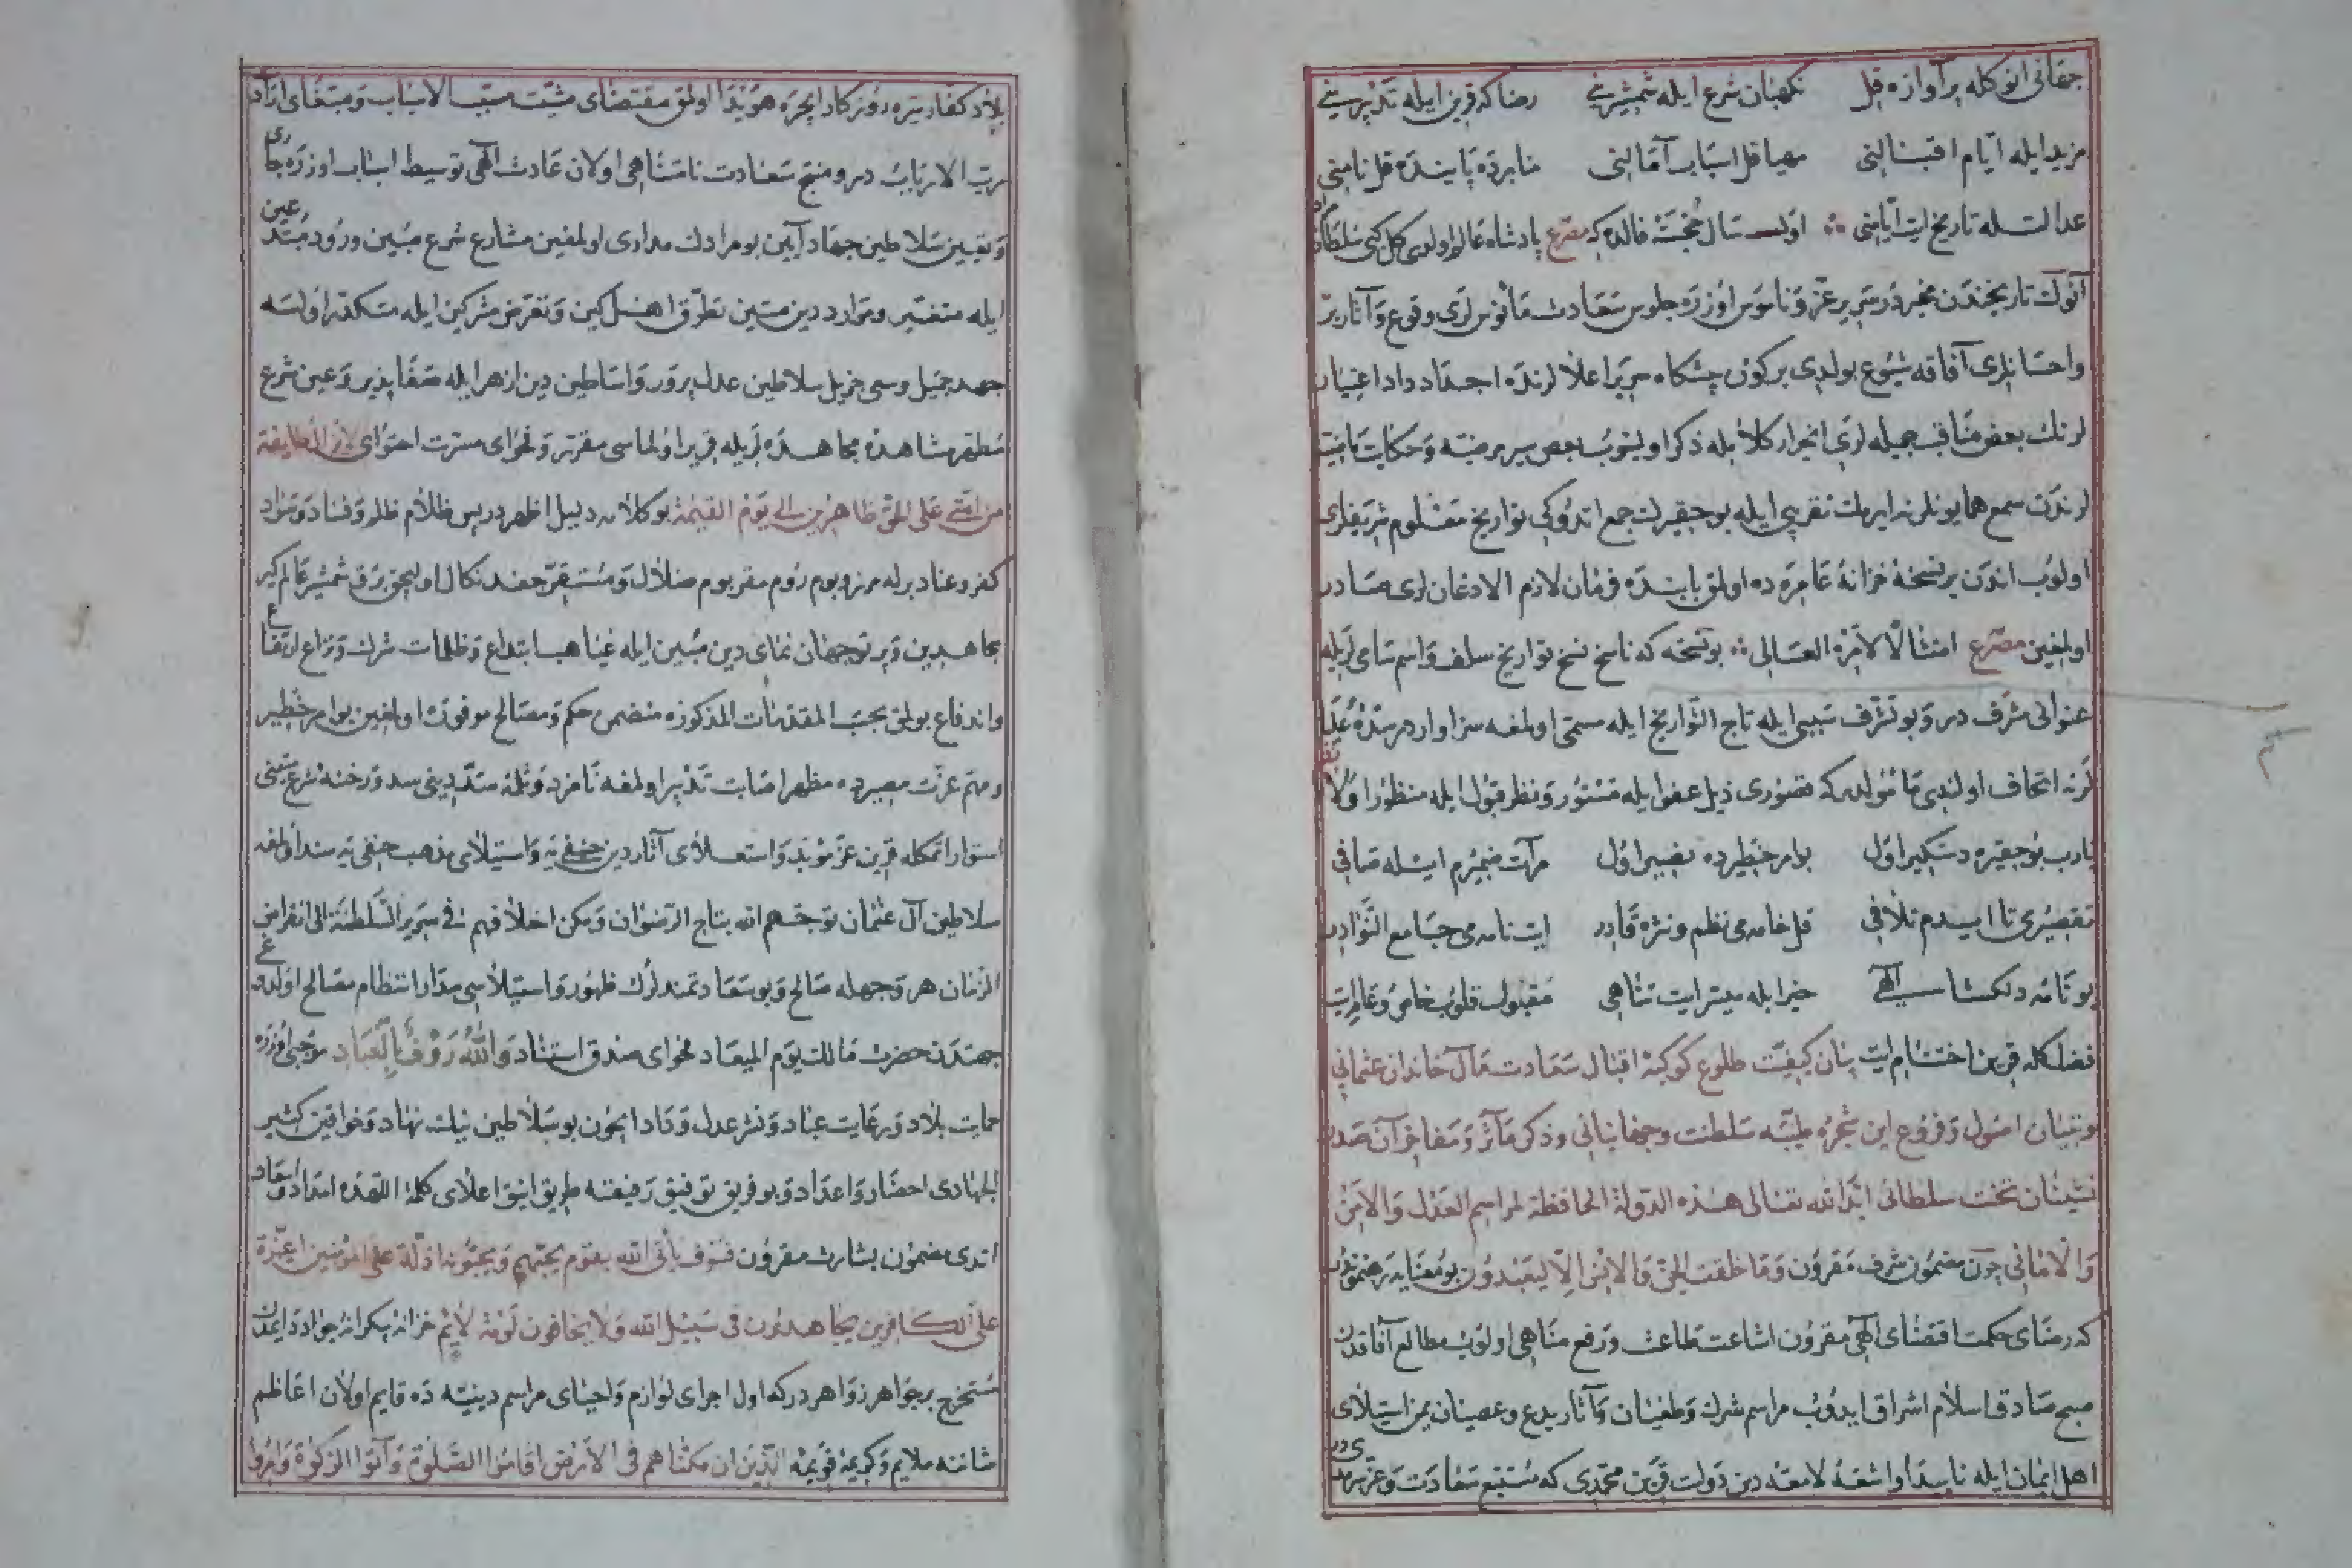 جهانی انوكله پر آوازه قل نكهبان شرع ایله شمشیرینی رضاكه قرین ایله تدبیرینی
مزید ایله ایام اقبالنی مهیا قل اسباب آمالنی منابرده پاینده قل نامنی
عدالتله تاریخ ایت ایامنی اول سال خجسته فالده كه مصرع پادشاه عالم اولدی كل كبی سلطان
آنوك تاریخندن مخبردر سریر عز و ناموس اوزره جلوس سعادت مأنوس لری وقوع و آثار بر
واحسانلری آفاقه شیوع بولدی بر كون پیشكاه سریر اعلالرنده اجداد داد اعتیاد
لرنك بعض مناقب جمیله لری انجرار كلام ایله ذكر اولنوب بعض سیر مرضیه و حكایات ثابته
لرندن سمع همایونلرنه ایرمك تقریبی ایله بو حقیرك جمع اتدوكی تواریخ معلوم شریفلری
اولوب اندن بر نسخه خزانه عامره ده اولمق بابنده فرمان لازم الاذعان لری صادر
اولمغین مصرع امتثالا لامره العالی بو نسخه كه ناسخ نسخ تواریخ سلف و اسم سامی لریله
عنوانی مشرف در و بو تشرف سببی ایله تاج التواریخ ایله مسمی اولمغه سزاوار در سده علیا
لرنه اتحاف اولندی مأمولدر كه قصوری ذیل عفو ایله مستور و نظر قبول ایله منظور اولا
یارب بو حقیره دستكیر اول بو امر خطیرده نصیر اول مرآت ضمیرم ایله صافی
تقصیری تا ایدم تلافی قل خامه می نظم و نثره قادر ایت نامه می جامع النوادر
بو نامه دلكشا سی الهی خیر ایله میسر ایت تناهی مقبول قلوب خاص و عام ایت
فضلكله قرین اختتام ایت بیان كیفیت طلوع كوكبه اقبال سعادت مآل خاندان عثمانی
و تبیان اصول و فروع این شجره طیبه سلطنت و جهانبانی و ذكر مآثر و مفاخر آن صدر
نشینان تخت سلطانی ابد الله تعالی هذه الدولة الحافظة لمراسم العدل والامن
والامانی چون مضمون شرف مقرون وما خلقت الجن والانس الا لیعبدون بو معنایه رهنموندر
كه رضای حكمت اقتضای الهی مقرون اشاعت طاعت و رفع مناهی اولوب مطالع آفاقدن
صبح صادق اسلام اشراق ایدوب مراسم شرك و طغیان و آثار بدع و عصیان یمن استیلای
اهل ایمان ایله ناپیدا و اشعه لامعه دین دولت قرین محمدی كه مستتبع سعادت و عز سرمدیدر
بلاد كفار تیره روزكار ایچره هویدا اولمق مقتضای مشیت مسبب الاسباب و مبتغای ارادت
رب الارباب در و منتج سعادت نامتناهی اولان عادت الهی توسیط اسباب اوزره جاری
و تعیین سلاطین جهاد آیین بو مرادك مداری اولمغین مشارع شرع مبین ورود مبتدعین
ایله متغیر و موارد دین متین تطرق اهل كین و تعرض مشركین ایله متكدر اولسه
جهد جمیل و سعی جزیل سلاطین عدل پرور و اساطین دین ازهر ایله صفاپذیر و عین شرع
مطهر مشاهده مجاهده لریله قریر اولماسی مقرر و فحوای مسرت احتوای لا تزال طایفة
من امتی علی الحق ظاهرین الی یوم القیمة بو كلامه دلیل اظهردر پس ظلام ظلم و فساد و سواد
كفر و عناد بریله مرز و بوم روم مقر بوم ضلال و مستقر جغد نكال اولیجق برق شمشیر عالم كیر
مجاهدین و پرتو جهان نمای دین مبین ایله غیاهب ابتداع و ظلمات شرك و نزاع ارتفاع
و اندفاع بولمق بحسب المقدمات المذكوره متضمن حكم و مصالح موفوره اولمغین بو امر خطیر
و مهم عزت مصیرده مظهر اصابت تدبیر اولمغه نامزد و ثلمه سد دینی سد و رخنه شرع متینی
استوار اتمكله قرین عز مؤبد و استعلای آثار دین حنفی یه و استیلای مذهب حنفی یه سند اولمغه
سلاطین آل عثمان توجهم الله بتاج الرضوان و مكن اخلافهم فی سریر السلطنة الی انقراض
الزمان هر وجهله صالح و بو سعادتمندلرك ظهور و استیلاسی مدار انتظام مصالح اولدوغی
جهتدن حضرت مالك یوم المیعاد فحوای صدق استناد والله رؤف بالعباد موجبی اوزره
حمایت بلاد و رعایت عباد و نشر عدل و داد ایچون بو سلاطین نیك نهاد و خواقین كثیر
الجهادی احضار و اعداد و بو فریق توفیق رفیقنه طریق انیق اعلای كلمة اللهده امداد و اسعاد
اتدی مضمون بشارت مقرون فسوف یأتی الله بقوم یحبهم ویحبونه اذلة علی المؤمنین اعزة
علی الكافرین یجاهدون فی سبیل الله ولا یخافون لومة لائم خزانه بیكرانه جوادد ایمدن
مستخرج بر جواهر زواهر در كه اول اجرای لوازم و احیای مراسم دینیه ده قایم اولان اعاظم
شاننه ملایم و كریمه قویمه الذین ان مكناهم فی الارض اقاموا الصلوة وآتوا الزكوة وامروا